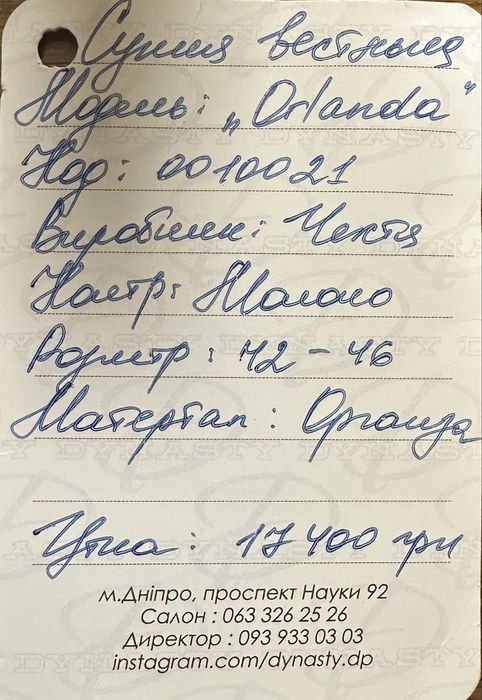 Сукня весільна
Модель: „Orlanda"
Код: 0010021
Виробник: Чехія
Колір: Молоко
Розмір: 42 – 46
Матеріал: Органза
Ціна: 17 400 грн
м.Дніпро, проспект Науки 92
Салон : 063 326 25 26
Директор : 093 933 03 03
instagram.com/dynasty.dp